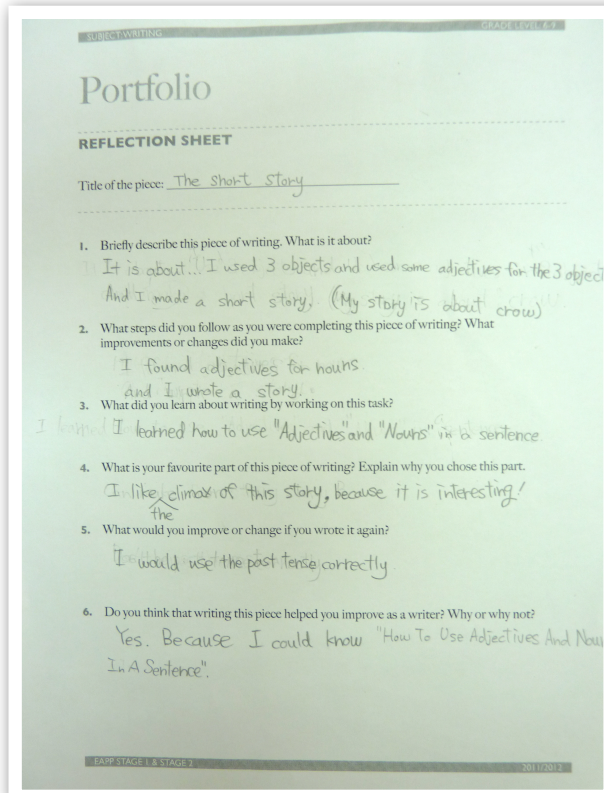 SUBJECT: WRITING
GRADE LEVEL 6-9
Portfolio
REFLECTION SHEET
Title of the piece: The Short Story
1. Briefly describe this piece of writing. What is it about?
It is about... I used 3 objects and used some adjectives for the 3 object
And I made a short story. (My story is about crow)
2. What steps did you follow as you were completing this piece of writing? What
improvements or changes did you make?
I found adjectives for nouns
and I wrote a story.
3. What did you learn about writing by working on this task?
I learned how to use "Adjectives" and "Nouns" in a sentence.
4. What is your favourite part of this piece of writing? Explain why you chose this part.
I like the climax of this story, because it is interesting!
5. What would you improve or change if you wrote it again?
I would use the past tense correctly
6. Do you think that writing this piece helped you improve as a writer? Why or why not?
Yes. Because I could know "How To Use Adjectives And Noun
In A Sentence".
EAPP STAGE 1 & STAGE 2
2011/2012